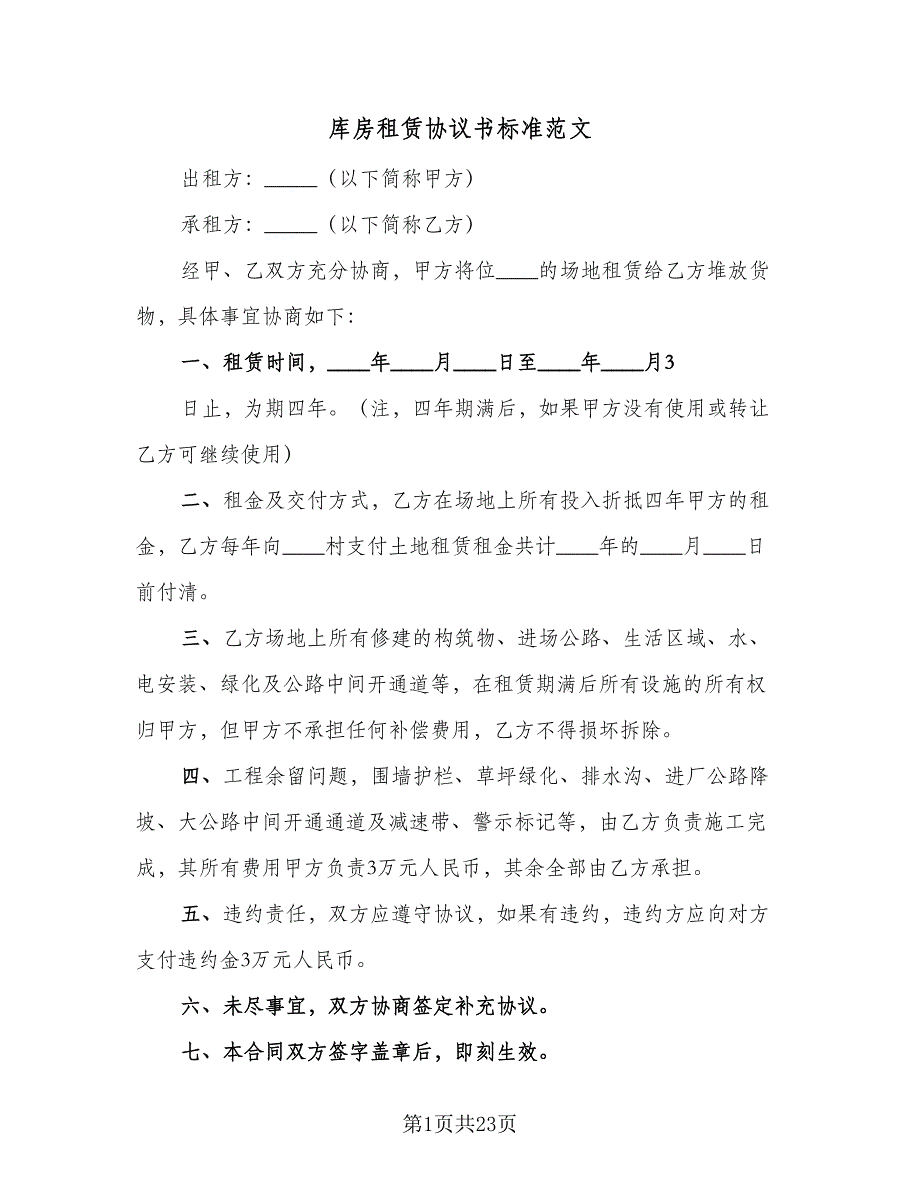 库房租赁协议书标准范文
出租方：_____（以下简称甲方）
承租方：_____（以下简称乙方）
经甲、乙双方充分协商，甲方将位____的场地租赁给乙方堆放货
物，具体事宜协商如下：
一、租赁时间，____年____月____日至____年____月3
日止，为期四年。（注，四年期满后，如果甲方没有使用或转让
乙方可继续使用）
二、租金及交付方式，乙方在场地上所有投入折抵四年甲方的租
金，乙方每年向____村支付土地租赁租金共计____年的____月____日
前付清。
三、乙方场地上所有修建的构筑物、进场公路、生活区域、水、
电安装、绿化及公路中间开通道等，在租赁期满后所有设施的所有权
归甲方，但甲方不承担任何补偿费用，乙方不得损坏拆除。
四、工程余留问题，围墙护栏、草坪绿化、排水沟、进厂公路降
坡、大公路中间开通通道及减速带、警示标记等，由乙方负责施工完
成，其所有费用甲方负责3万元人民币，其余全部由乙方承担。
五、违约责任，双方应遵守协议，如果有违约，违约方应向对方
支付违约金3万元人民币。
六、未尽事宜，双方协商签定补充协议。
七、本合同双方签字盖章后，即刻生效。
第1页共23页